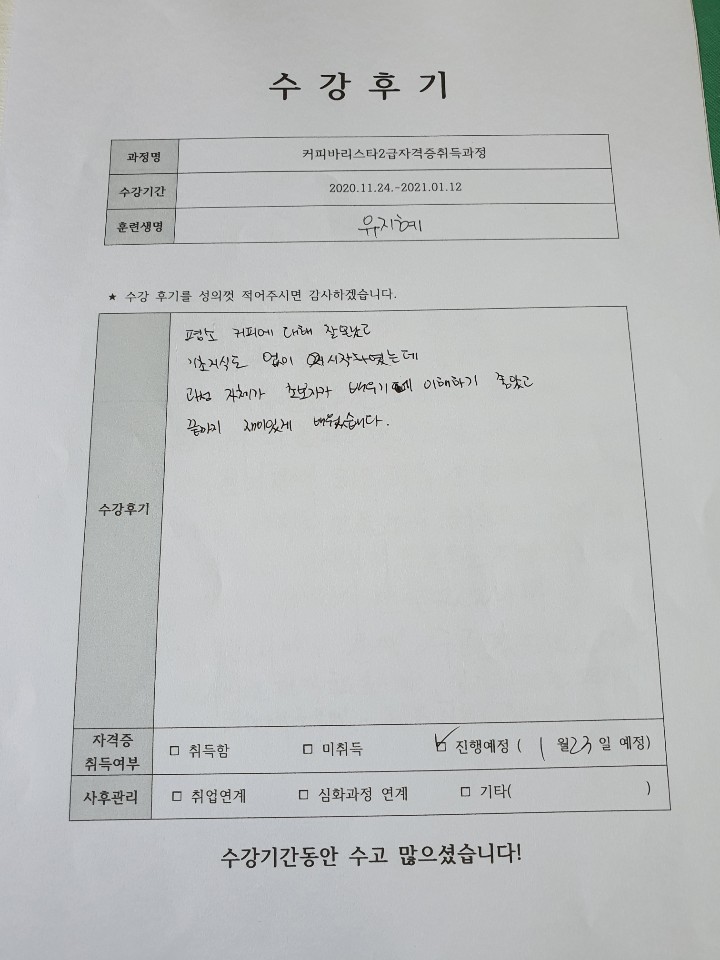 수 강 후 기
과정명 커피바리스타2급자격증취득과정
수강기간 2020.11.24.-2021.01.12
훈련생명 유지혜
★ 수강 후기를 성의껏 적어주시면 감사하겠습니다.
평소 커피에 대해 잘 모랐고
기초지식도 없이 시작하였는데
과정 자체가 초보자가 배우기에 이해하기 좋았고
끝까지 재미있게 배웠습니다.
수강후기
자격증 취득여부 □ 취득함 □ 미취득 ☑ 진행예정 ( 1 월 23 일 예정)
사후관리 □ 취업연계 □ 심화과정 연계 □ 기타( )
수강기간동안 수고 많으셨습니다!